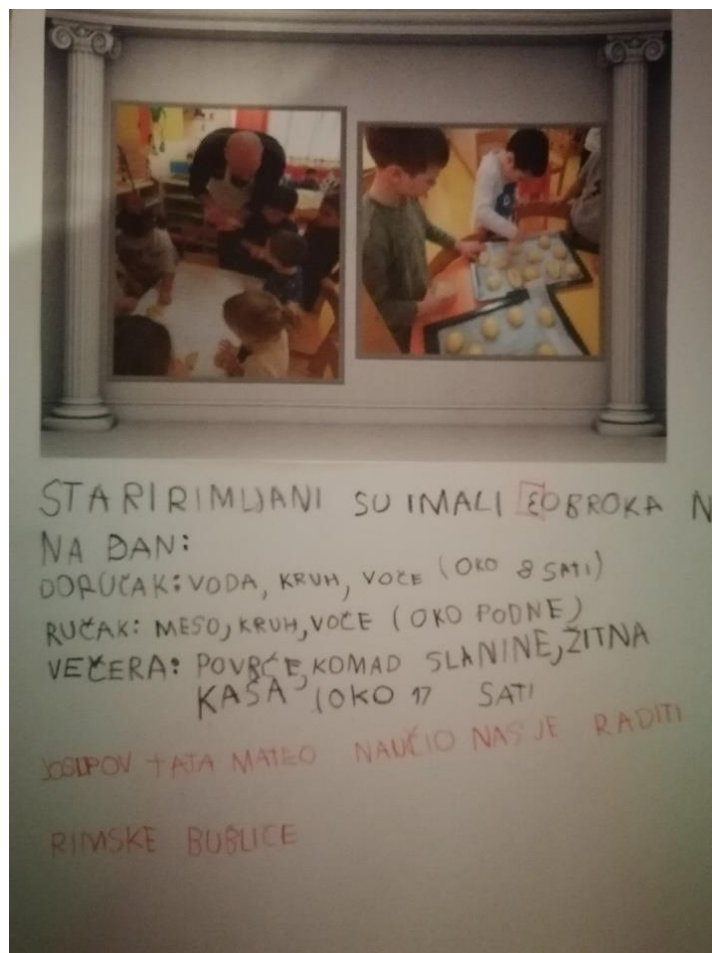 STARI RIMLJANI SU IMALI 3 OBROKA N
NA ĐAN:
DORUČAK: VODA, KRUH, VOČE (OKO 8 SATI)
RUČAK: MESO, KRUH, VOČE (OKO PODNE)
VEČERA: POVRČE, KOMAD SLANINE, ŽITNA
KAŠA (OKO 17 SATI
JOSIPOV TATA MATEO NAUČIO NAS JE RADITI
RIMSKE BUBLICE